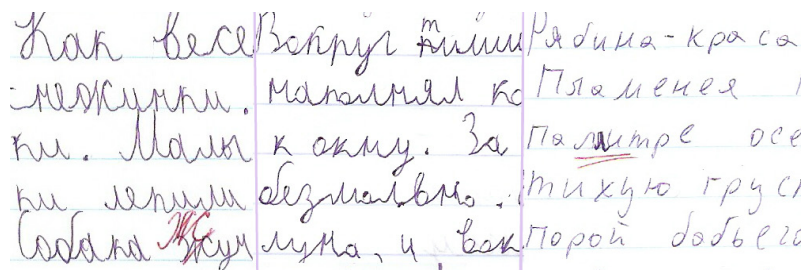 Как весе
снежинки.
ки. Малы
ки лепили
Собака Жуч
Вокруг тиши
наполнял ко
к окну. За
безмолвно.
луна, и вок
Рябина-краса
Пламенея
Палитре осе
тихую грус
порой бабьего